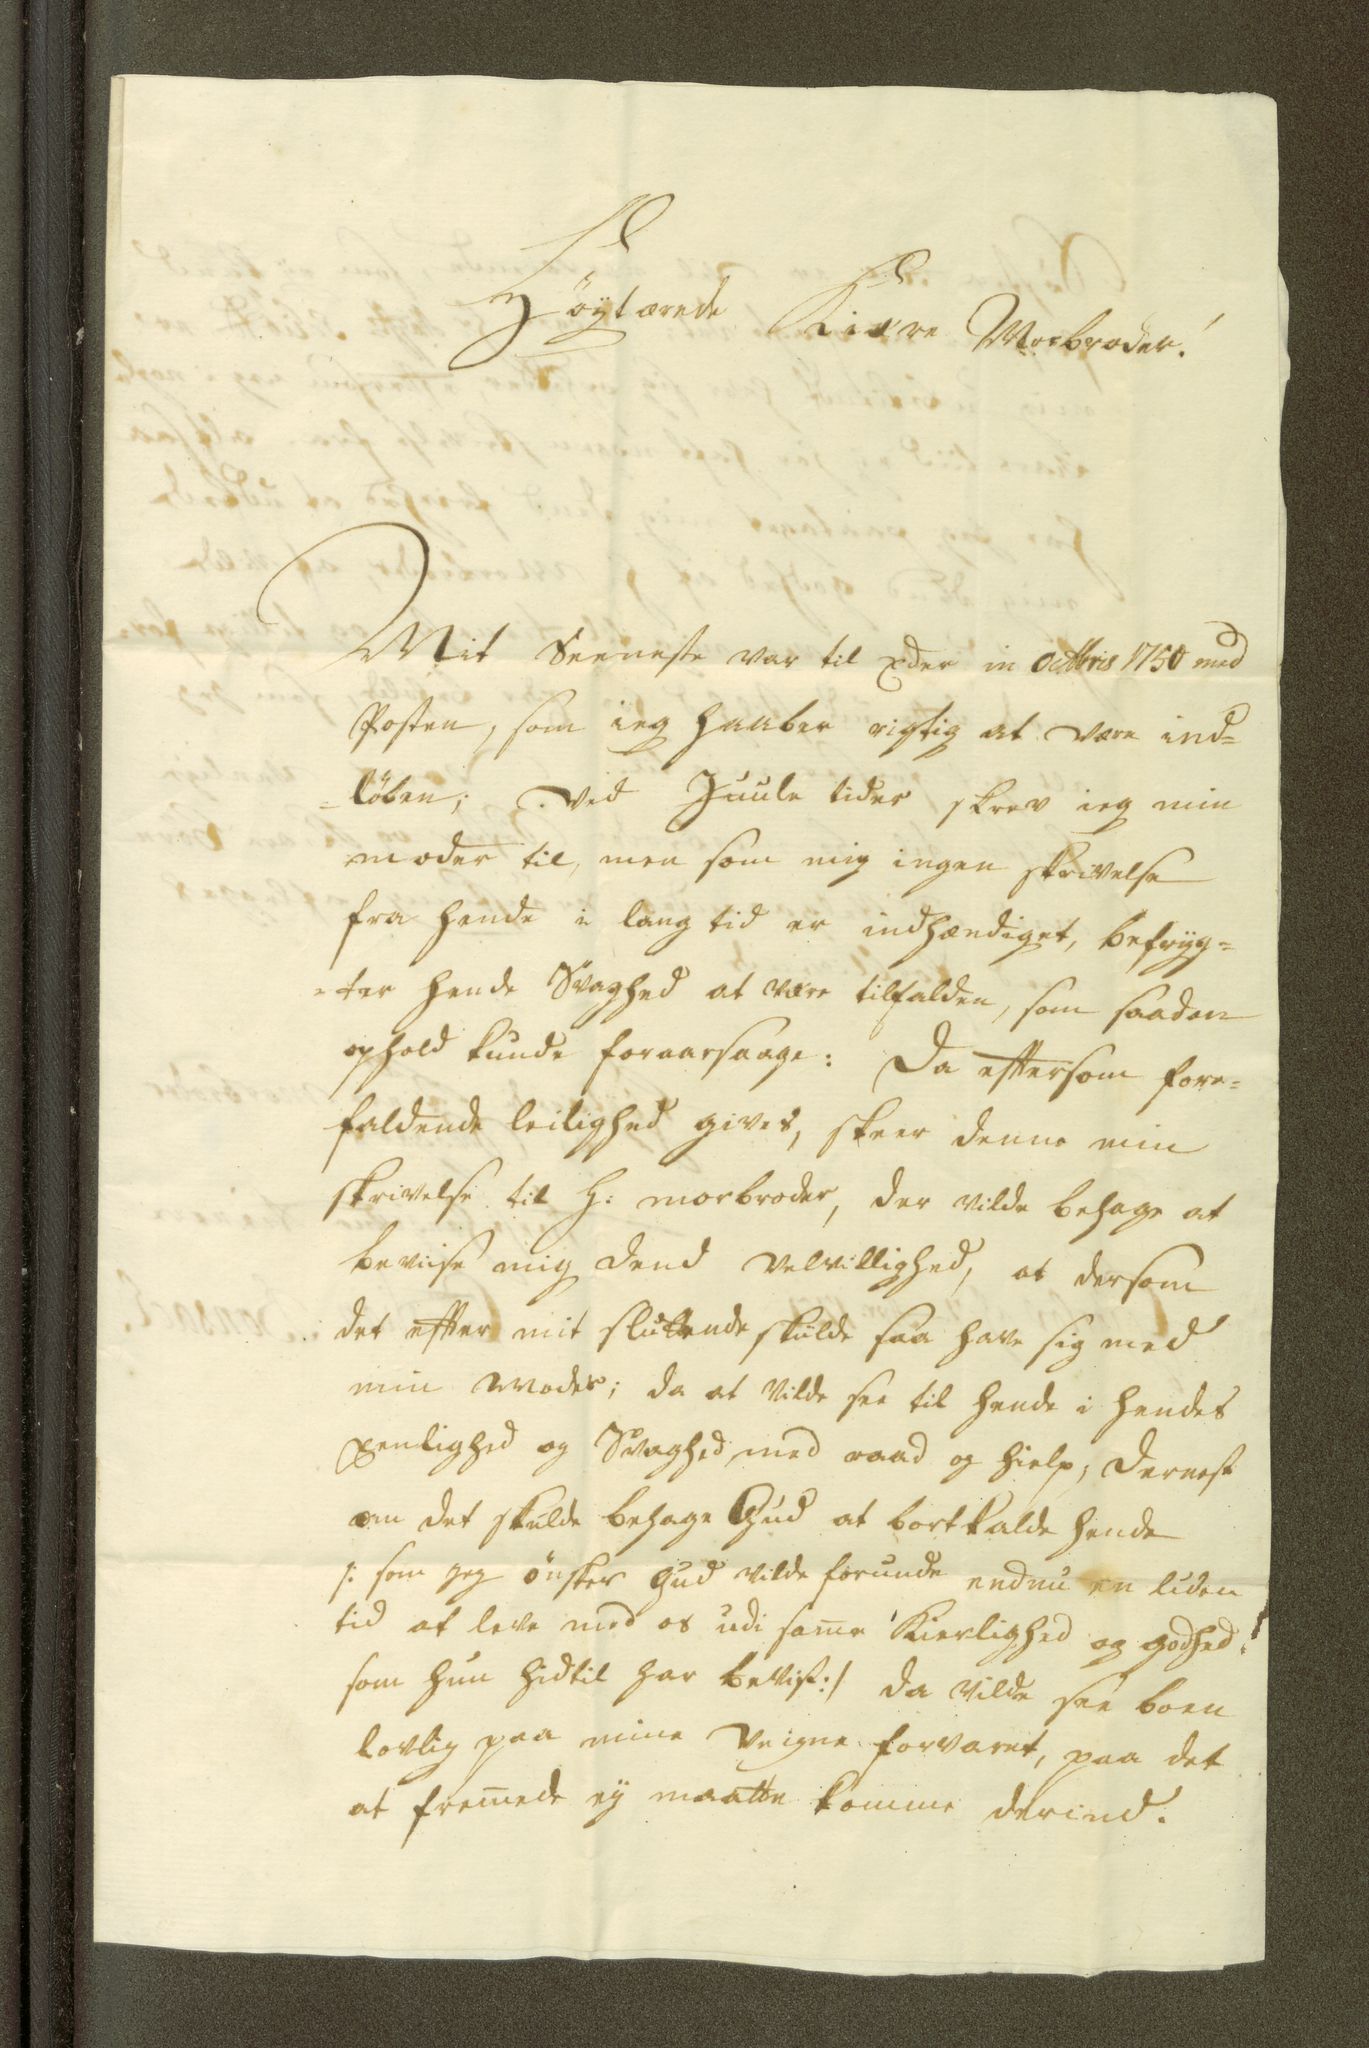 Höÿtærede Kiære Morbroder!
Mit Seeneste var til Eder in Octbris 1750 med
Posten, som ieg haaber rigtig at være ind=
=löben; ved Juule tider skrev ieg min
moder til, men som mig ingen skrivelse
fra hende i lang tid er indhændiget, befrÿg=
=ter hende Svaghed at være tilfalden, som saadan
ophold kunde foraarsaage: Da efftersom fore=
faldende leilighed gives, skeer denne min
skrivelse til H: morbroder, der vilde behage at
beviise mig dend velvillighed, at dersom
det effter mit sluttende skulde saa have sig med
min Moder; da at vilde see til hende i hendes
Eenlighed og Svaghed med raad og hielp; dernest
om det skulde behage Gud at bortkalde hende
/: som jeg önsker Gud vilde forunde endnu en liden
tid at leve med os udi same Kierlighed og godhed
som hun hidtil har bevist:/ da vilde see boen
lovlig paa mine veigne forvaret, paa det
at fremede eÿ maatte komme derind.